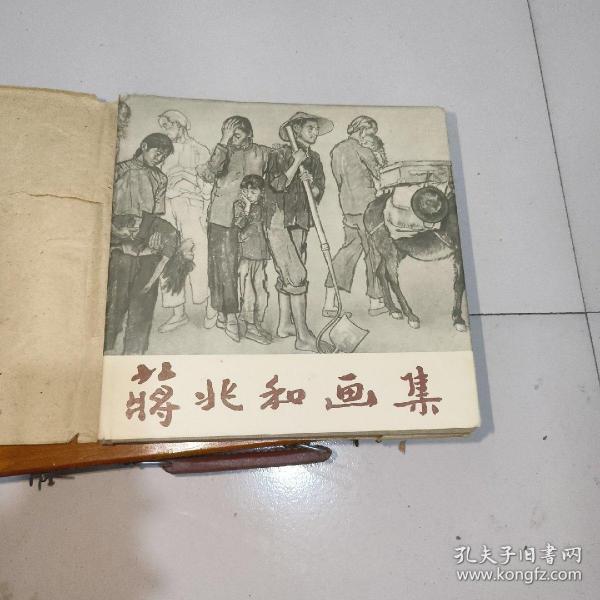 蔣兆和画集
孔夫子旧書网
www.kongfz.com